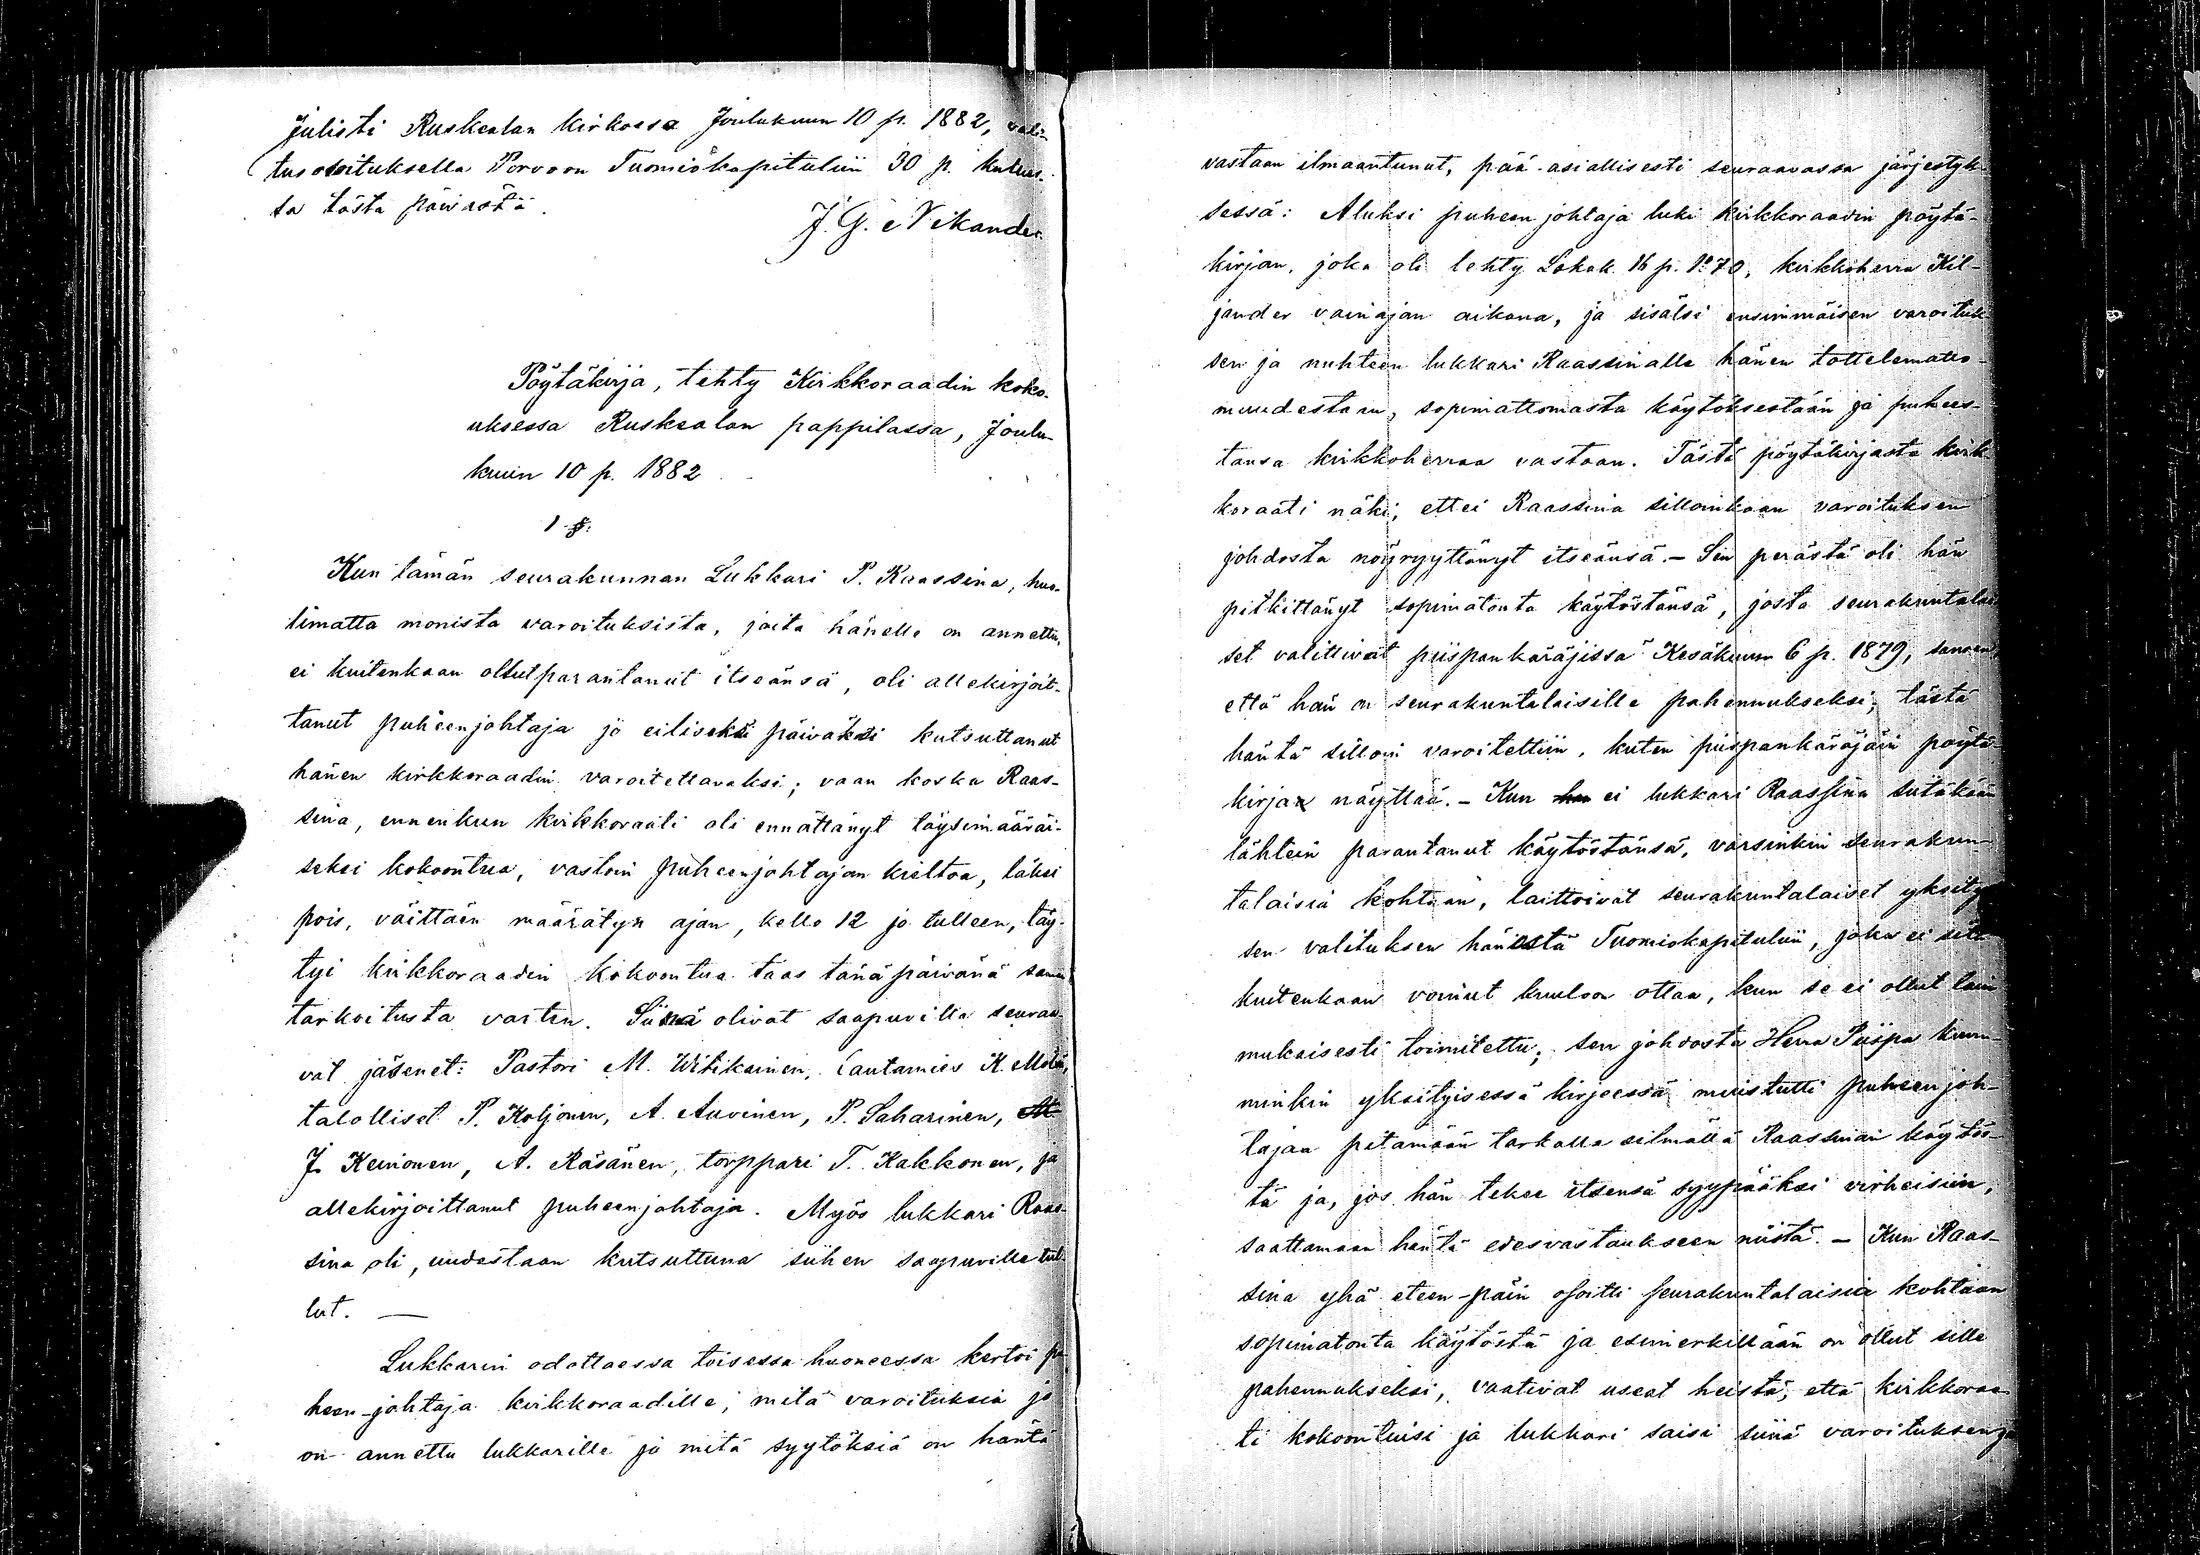 Julisti Ruskealan kirkossa Joulukuun 10 p. 1882, vali-
tusosoituksella Porvoon Tuomiokapituliin 30 p. kulues-
sa tästä päivästä.
J. G. Nikander.
Pöytäkirja, tehty Kirkkoraadin koko-
uksessa Ruskealan pappilassa, Joulu-
kuun 10 p. 1882
1 §.
Kun tämän seurakunnan Lukkari P. Raassina, huo-
limatta monista varoituksista, joita hänelle on annettu,
ei kuitenkaan ollut parantanut itseänsä, oli allekirjoit-
tanut puheenjohtaja jo eiliseksi päiväksi kutsuttanut
hänen kirkkoraadin varoitettavaksi; vaan koska Raas-
sina, ennenkun kirkkoraati oli ennättänyt täysimääräi-
seksi kokoontua, vastoin puheenjohtajan kieltoa, läksi
pois, väittäen määrätyn ajan, kello 12 jo tulleen, täy-
tyi kirkkoraadin kokoontua taas tänäpäivänä samaa
tarkoitusta varten. Siinä olivat saapuvilla seuraa-
vat jäsenet: Pastori M. Witikainen, Lautamies K.
talolliset P. Koljonen, A. Auvinen, P. Saharinen,
J. Keinonen, A. Räsänen, torppari T. Kakkonen, ja
allekirjoittanut puheenjohtaja. Myös lukkari Raas-
sina oli, uudestaan kutsuttuna siihen saapuville tul-
lut. —
Lukkarin odottaessa toisessa huoneessa kertoi pu-
heen-johtaja kirkkoraadille, mitä varoituksia jo
on annettu lukkarille ja mitä syytöksiä on häntä
vastaan ilmaantunut, pää-asiallisesti seuraavassa järjestyk-
sessä: Aluksi puheenjohtaja luki kirkkoraadin pöytä-
kirjan, joka oli tehty Lokak. 16 p. 1870, kirkkoherra Kil-
jander vainajan aikana, ja sisälsi ensimmäisen varoituk-
sen ja nuhteen lukkari Raassinalle hänen tottelematto-
muudestaan, sopimattomasta käytöksestään ja puhees-
tansa kirkkoherraa vastaan. Tästä pöytäkirjasta kirk-
koraati näki, ettei Raassina silloinkaan varoituksen
johdosta nöyryyttänyt itseänsä. — Sen perästä oli hän
pitkittänyt sopimatonta käytöstänsä, josta seurakuntalai-
set valittivat piispankäräjissä Kesäkuun 6 p. 1879, sanoen,
että hän on seurakuntalaisille pahennukseksi; tästä
häntä silloin varoitettiin, kuten piispankäräjäin pöytä-
kirja näyttää. — Kun ei lukkari Raassina siitäkään
lähtein parantanut käytöstänsä, varsinkin seurakun-
talaisia kohtaan, laittoivat seurakuntalaiset yksityi-
sen valituksen hänestä Tuomiokapituliin, joka ei sitä
kuitenkaan voinut kuuloon ottaa, kun se ei ollut lain
mukaisesti toimitettu; sen johdosta Herra Piispa kum-
minkin yksityisessä kirjeessä muistutti puheenjoh-
tajaa pitämään tarkalla silmällä Raassinan käytös-
tä ja, jos hän tekee itsensä syypääksi virheisiin,
saattamaan häntä edesvastaukseen niistä. — Kun Raas-
sina yhä eteen-päin osoitti seurakuntalaisia kohtaan
sopimatonta käytöstä ja esimerkillään on ollut sille
pahennukseksi, vaativat useat heistä, että kirkkoraa-
ti kokoontuisi ja lukkari saisi siinä varoituksensa